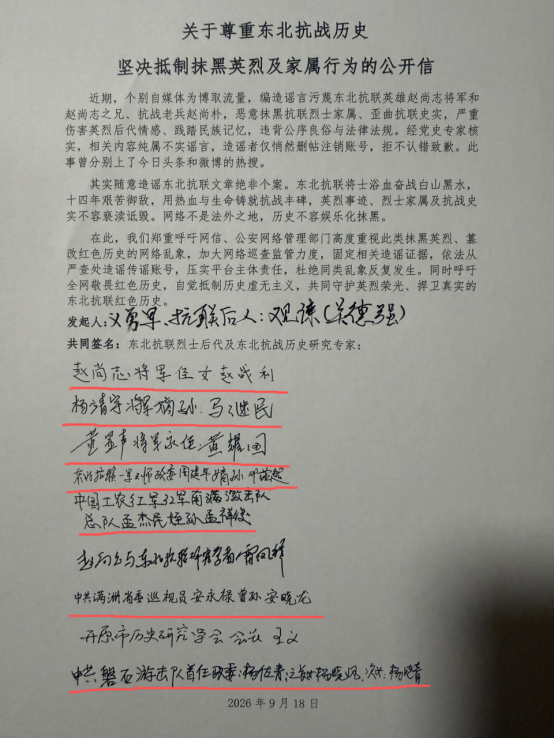 关于尊重东北抗战历史
坚决抵制抹黑英烈及家属行为的公开信
近期，个别自媒体为博取流量，编造谣言污蔑东北抗联英雄赵尚志将军和
赵尚志之兄、抗战老兵赵尚朴，恶意抹黑抗联烈士家属、歪曲抗联史实，严重
伤害英烈后代情感、践踏民族记忆，违背公序良俗与法律法规。经党史专家核
实，相关内容纯属不实谣言，造谣者仅悄然删帖注销账号，拒不认错致歉。此
事曾分别上了今日头条和微博的热搜。
其实随意造谣东北抗联文章绝非个案。东北抗联将士浴血奋战白山黑水，
十四年艰苦御敌，用热血与生命铸就抗战丰碑，英烈事迹、烈士家属及抗战史
实不容亵渎诋毁。网络不是法外之地，历史不容娱乐化抹黑。
在此，我们郑重呼吁网信、公安网络管理部门高度重视此类抹黑英烈、篡
改红色历史的网络乱象，加大网络巡查监管力度，固定相关造谣证据，依法从
严查处造谣传谣账号，压实平台主体责任，杜绝同类乱象反复发生。同时呼吁
全网敬畏红色历史，自觉抵制历史虚无主义，共同守护英烈荣光、捍卫真实的
东北抗联红色历史。
发起人：义勇军、抗联后人：观谏（吴德强）
共同签名：东北抗联烈士后代及东北抗战历史研究专家：
赵尚志将军侄女赵战利
杨靖宇将军嫡孙、马继民
黄显声将军永侄：黄耀国
东北抗联一军 师政委周建华嫡孙
中国工农红军32军南满游击队
总队孟杰民侄孙孟祥俊
赵尚志与东北抗联研究学者
中共满洲省委巡视员安永禄曾孙 安晓龙
开原市历史研究学会 会长 王义
中共磐石游击队首任政委：杨佐青之女杨晓 、 杨晓青
2026年9月18日